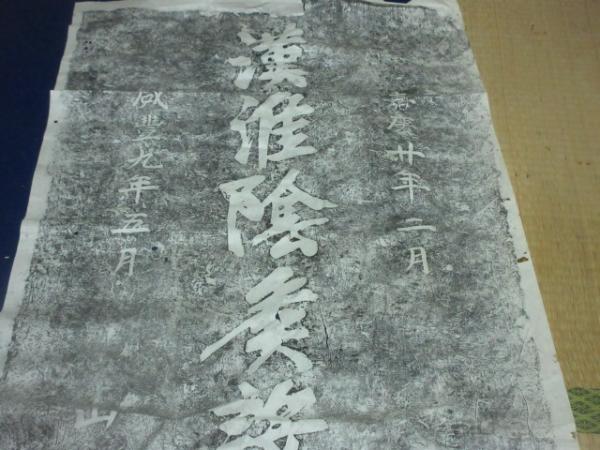 嘉慶廿年二月
漢淮陰侯
咸豐九年五月
山